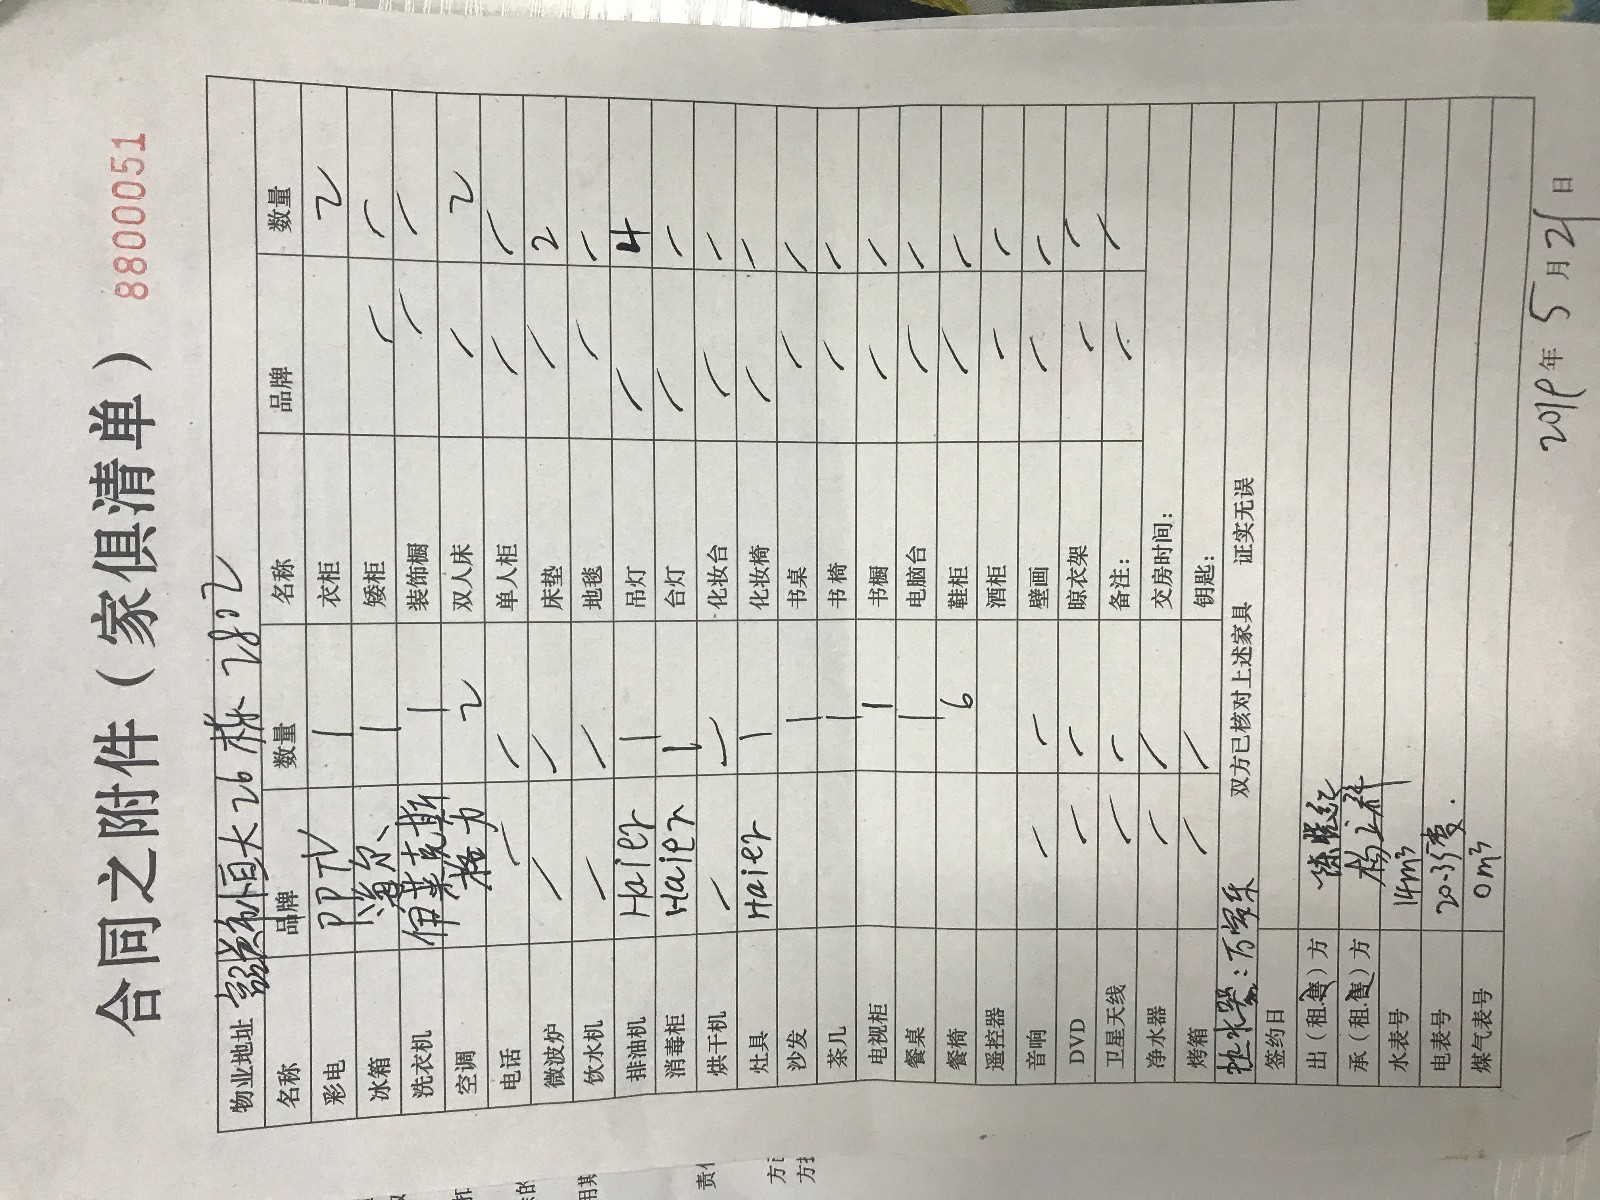 合同之附件（家俱清单） 8800051
物业地址 恒大26栋2802
名称 品牌 数量 名称 品牌 数量
彩电 PPTV 1 衣柜 2
冰箱 海尔 1 矮柜 / /
洗衣机 伊莱克斯 1 装饰橱 / /
空调 格力 2 双人床 / 2
电话 / / 单人柜 / /
微波炉 / / 床垫 / 2
饮水机 / / 地毯 / /
排油机 Haier 1 吊灯 / 4
消毒柜 Haier 1 台灯 / /
烘干机 / / 化妆台 / /
灶具 Haier 1 化妆椅 / /
沙发 1 书桌 / /
茶几 1 书椅 / /
电视柜 1 书橱 / /
餐桌 1 电脑台 / /
餐椅 6 鞋柜 / /
遥控器 酒柜 / /
音响 / / 壁画 / /
DVD / / 晾衣架 / /
卫星天线 / / 备注： / /
净水器 / / 交房时间：
烤箱 / / 钥匙：
热水器：万家乐 双方已核对上述家具 证实无误
签约日
出（租.售）方
承（租.售）方
水表号 14m³
电表号 20.35度.
煤气表号 0m³
2019年5月21日
方
责
用其